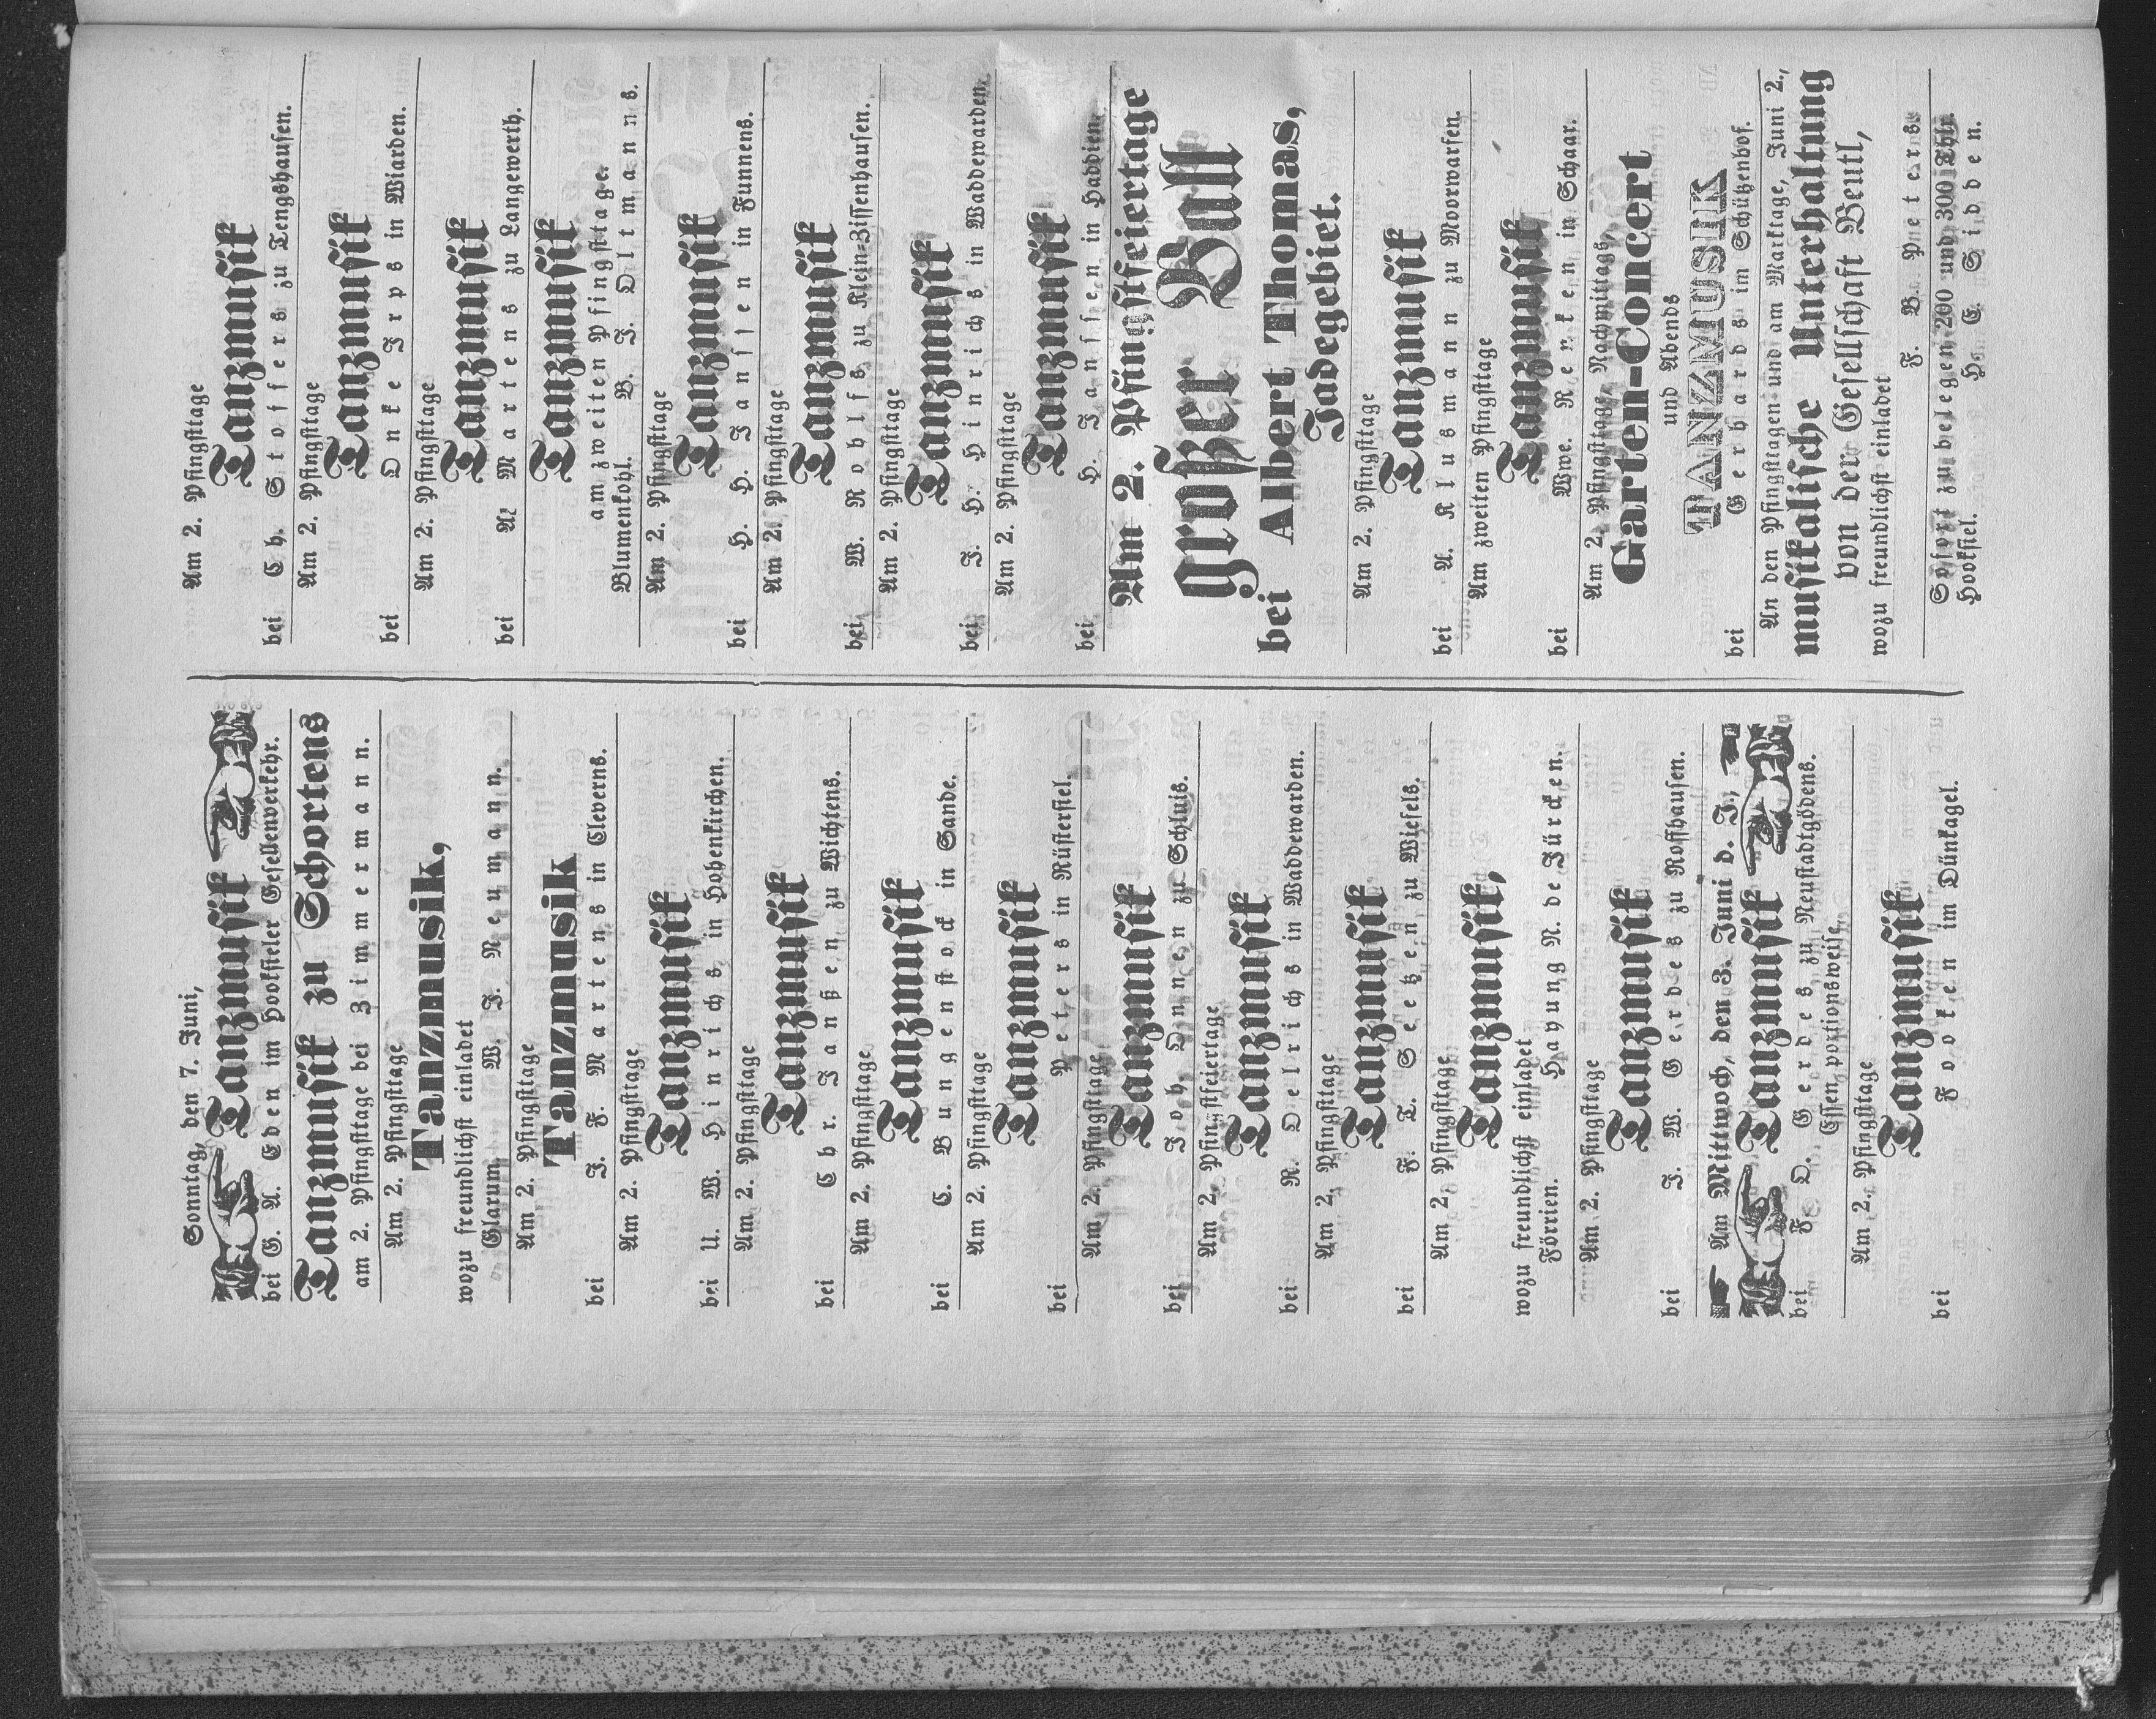 Sonntag, den 7. Juni,
Tanzmusik
bei G. A. Eden im Hooksieler Gesellenverkehr.
Tanzmusik zu Schortens
am 2. Pfingsttage bei Zimmermann.
Am 2. Pfingsttage
Tanzmusik,
wozu freundlichst einladet
Glarum. W. J. Neumann.
Am 2. Pfingsttage
Tanzmusik
bei J. F. Martens in Cleverns.
Am 2. Pfingsttage
Tanzmusik
bei U. W. Hinrichs in Hohenkirchen.
Am 2. Pfingsttage
Tanzmusik
bei Chr. Janßen zu Wichtens.
Am 2. Pfingsttage
Tanzmusik
bei C. Bungenstock in Sande.
Am 2. Pfingsttage
Tanzmusik
bei Peters in Rüstersiel.
Am 2. Pfingsttage
Tanzmusik
bei Joh. Onnen zu Schluis.
Am 2. Pfingstfeiertage
Tanzmusik
bei R. Oelrichs in Waddewarden.
Am 2. Pfingsttage
Tanzmusik
bei F. T. Seetzen zu Wiefels.
Am 2. Pfingsttage
Tanzmusik,
wozu freundlichst einladet
Förrien. Hayung N. de Jürcken.
Am 2. Pfingsttage
Tanzmusik
bei J. W. Gerdes zu Roffhausen.
Am Mittwoch, den 3. Juni d. J.,
Tanzmusik
bei F. O. Gerdes zu Neustadtgödens.
Essen portionsweise.
Am 2. Pfingsttage
Tanzmusik
bei Fooken im Dünkagel.
Am 2. Pfingsttage
Tanzmusik
bei Ch. Stoffers zu Tengshausen.
Am 2. Pfingsttage
Tanzmusik
bei Onke Irps in Wiarden.
Am 2. Pfingsttage
Tanzmusik
bei A. Martens zu Langewerth.
Tanzmusik
am zweiten Pfingsttage.
Blumenkohl. W. J. Oltmanns.
Am 2. Pfingsttage
Tanzmusik
bei H. H. Janssen in Funnens.
Am 2. Pfingsttage
Tanzmusik
bei W. Rohlfs zu Klein-Zissenhausen.
Am 2. Pfingsttage
Tanzmusik
bei J. H. Hinrichs in Waddewarden.
Am 2. Pfingsttage
Tanzmusik
bei H. Janssen in Haddien.
Am 2. Pfingstfeiertage
großer Ball
bei Albert Thomas,
Jadegebiet.
Am 2. Pfingsttage
Tanzmusik
bei A. Klusmann zu Moorwarfen.
Am zweiten Pfingsttage
Tanzmusik
bei Wwe. Renken in Schaar.
Am 2. Pfingsttage, Nachmittags,
Garten-Concert
und Abends
TANZMUSIK
bei Gerhards im Schützenhof.
An den Pfingsttagen und am Marktage, Juni 2.,
musikalische Unterhaltung
von der Gesellschaft Beutl,
wozu freundlichst einladet
F. B. Peters.
Sofort zu belegen 200 und 300 Thlr.
Hooksiel. H. E. Sidden.